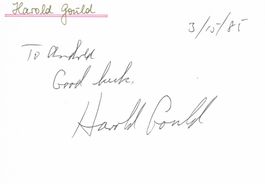 Harold Gould
3/15/85
To
Good luck.
Harold Gould